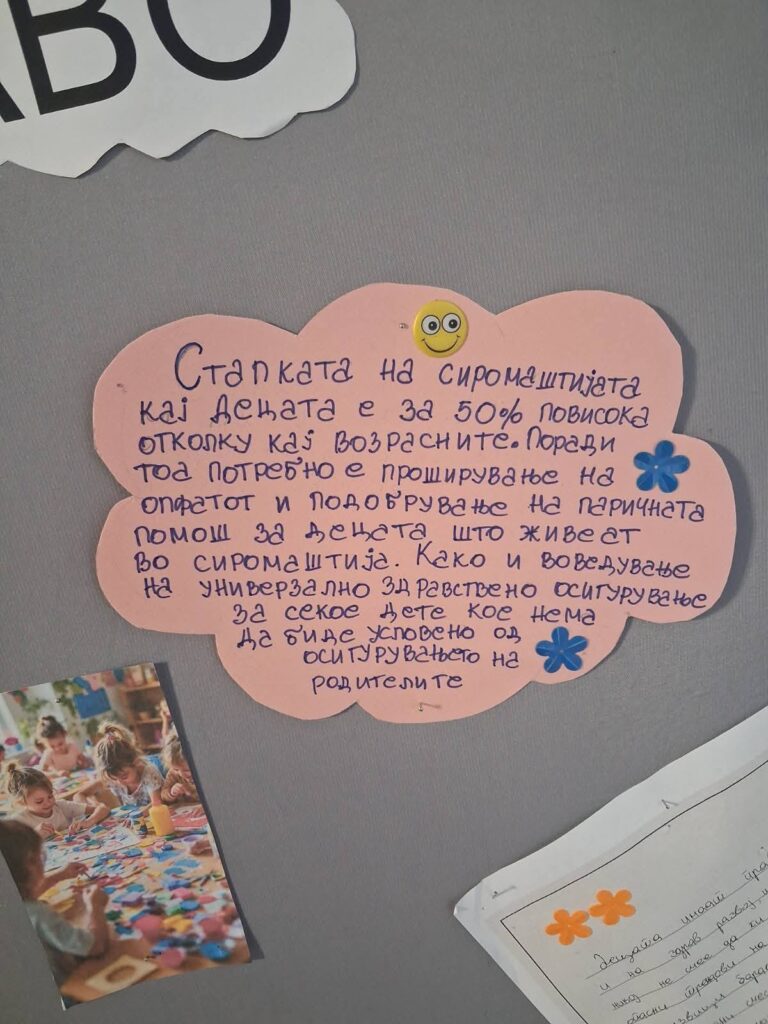 АВО
Стапката на сиромаштијата
кај децата е за 50% повисока
отколку кај возрасните. Поради
тоа потребно е проширување на
опфатот и подобрување на паричната
помош за децата што живеат
во сиромаштија. Како и воведување
на универзално здравствено осигурување
за секое дете кое нема
да биде условено од
осигурувањето на
родителите
Децата имаат
и на здрав развој,
не смее да